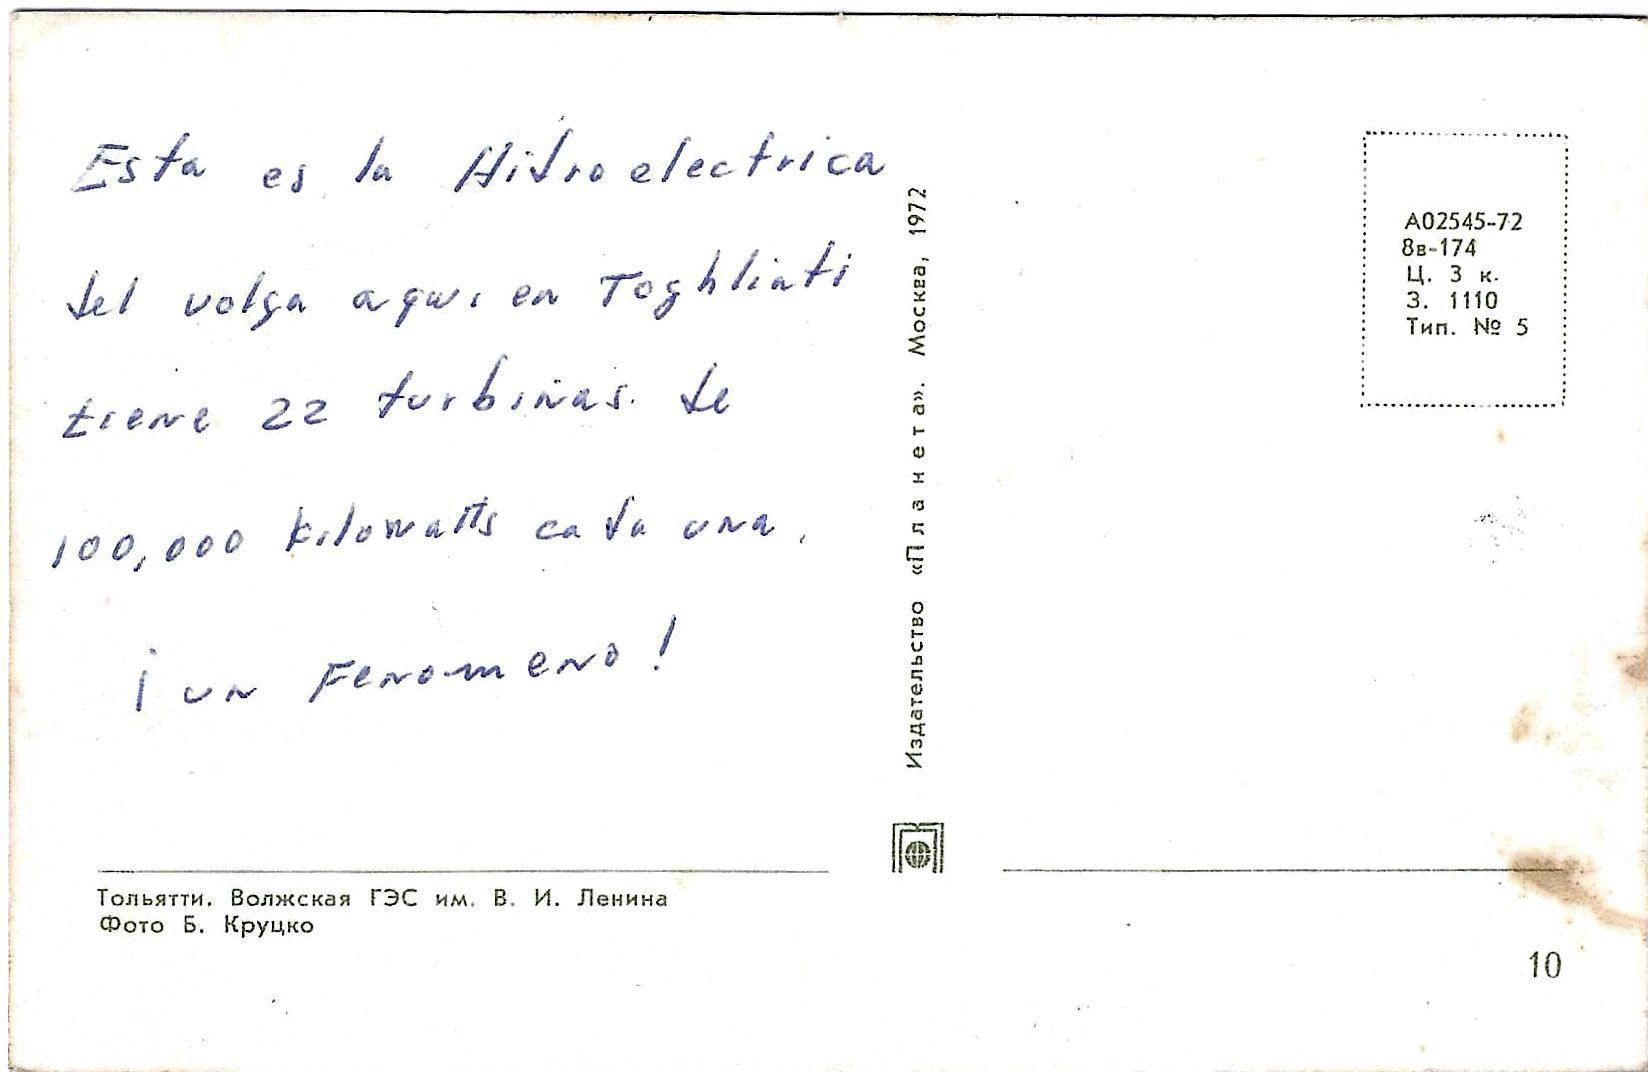 Esta es la Hidroelectrica
del volga aqui en Toghliati
tiene 22 turbinas. de
100,000 kilowatts cada una.
¡un Fenomeno!
Тольятти. Волжская ГЭС им. В. И. Ленина
Фото Б. Круцко
Издательство «Планета». Москва, 1972
А02545-72
8в-174
Ц. 3 к.
З. 1110
Тип. № 5
10